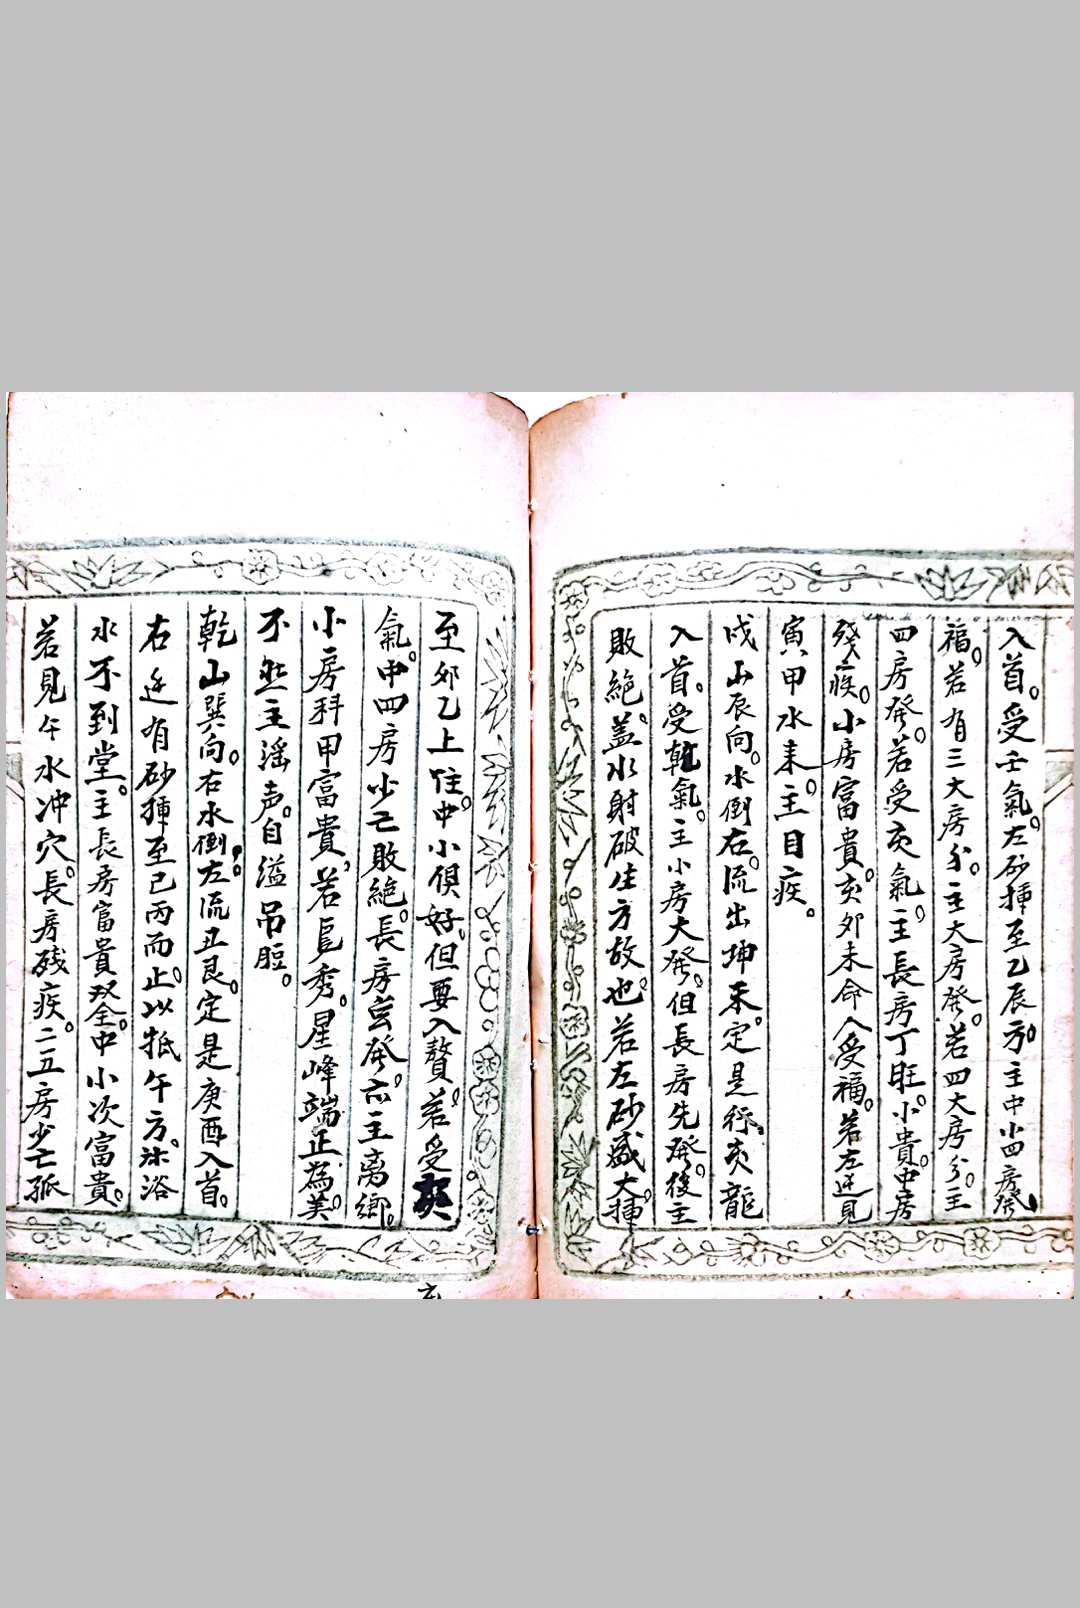 入首。受壬氣。左砂揮至乙辰方。主中小四房發
福。若有三大房分。主大房發。若四大房分。主
四房發。若受亥氣。主長房丁旺。小貴。中房
殘疾。小房富貴。亥卯未命人受福。若左边見
寅甲水耒。主目疾。
戌山辰向。水倒右。流出坤未。定是行亥龍
入首。受乾氣。主小房大發。但長房先發。後主
敗絕。盖水射破生方故也。若左砂盛大。揮
至卯乙上住。中小俱好。但要入贅。若受亥
氣。中四房少亡敗絕。長房玄發。亦主离鄉。
小房科甲富貴。若艮秀。星峰端正為美。
不然主滛声。自縊吊脰。
乾山巽向。右水倒左。流丑艮。定是庚酉入首。
右边有砂揮至巳丙而止。以抵午方。沐浴
水不到堂。主長房富貴双全。中小次富貴。
若見午水冲穴。長房残疾。二五房少亡孤